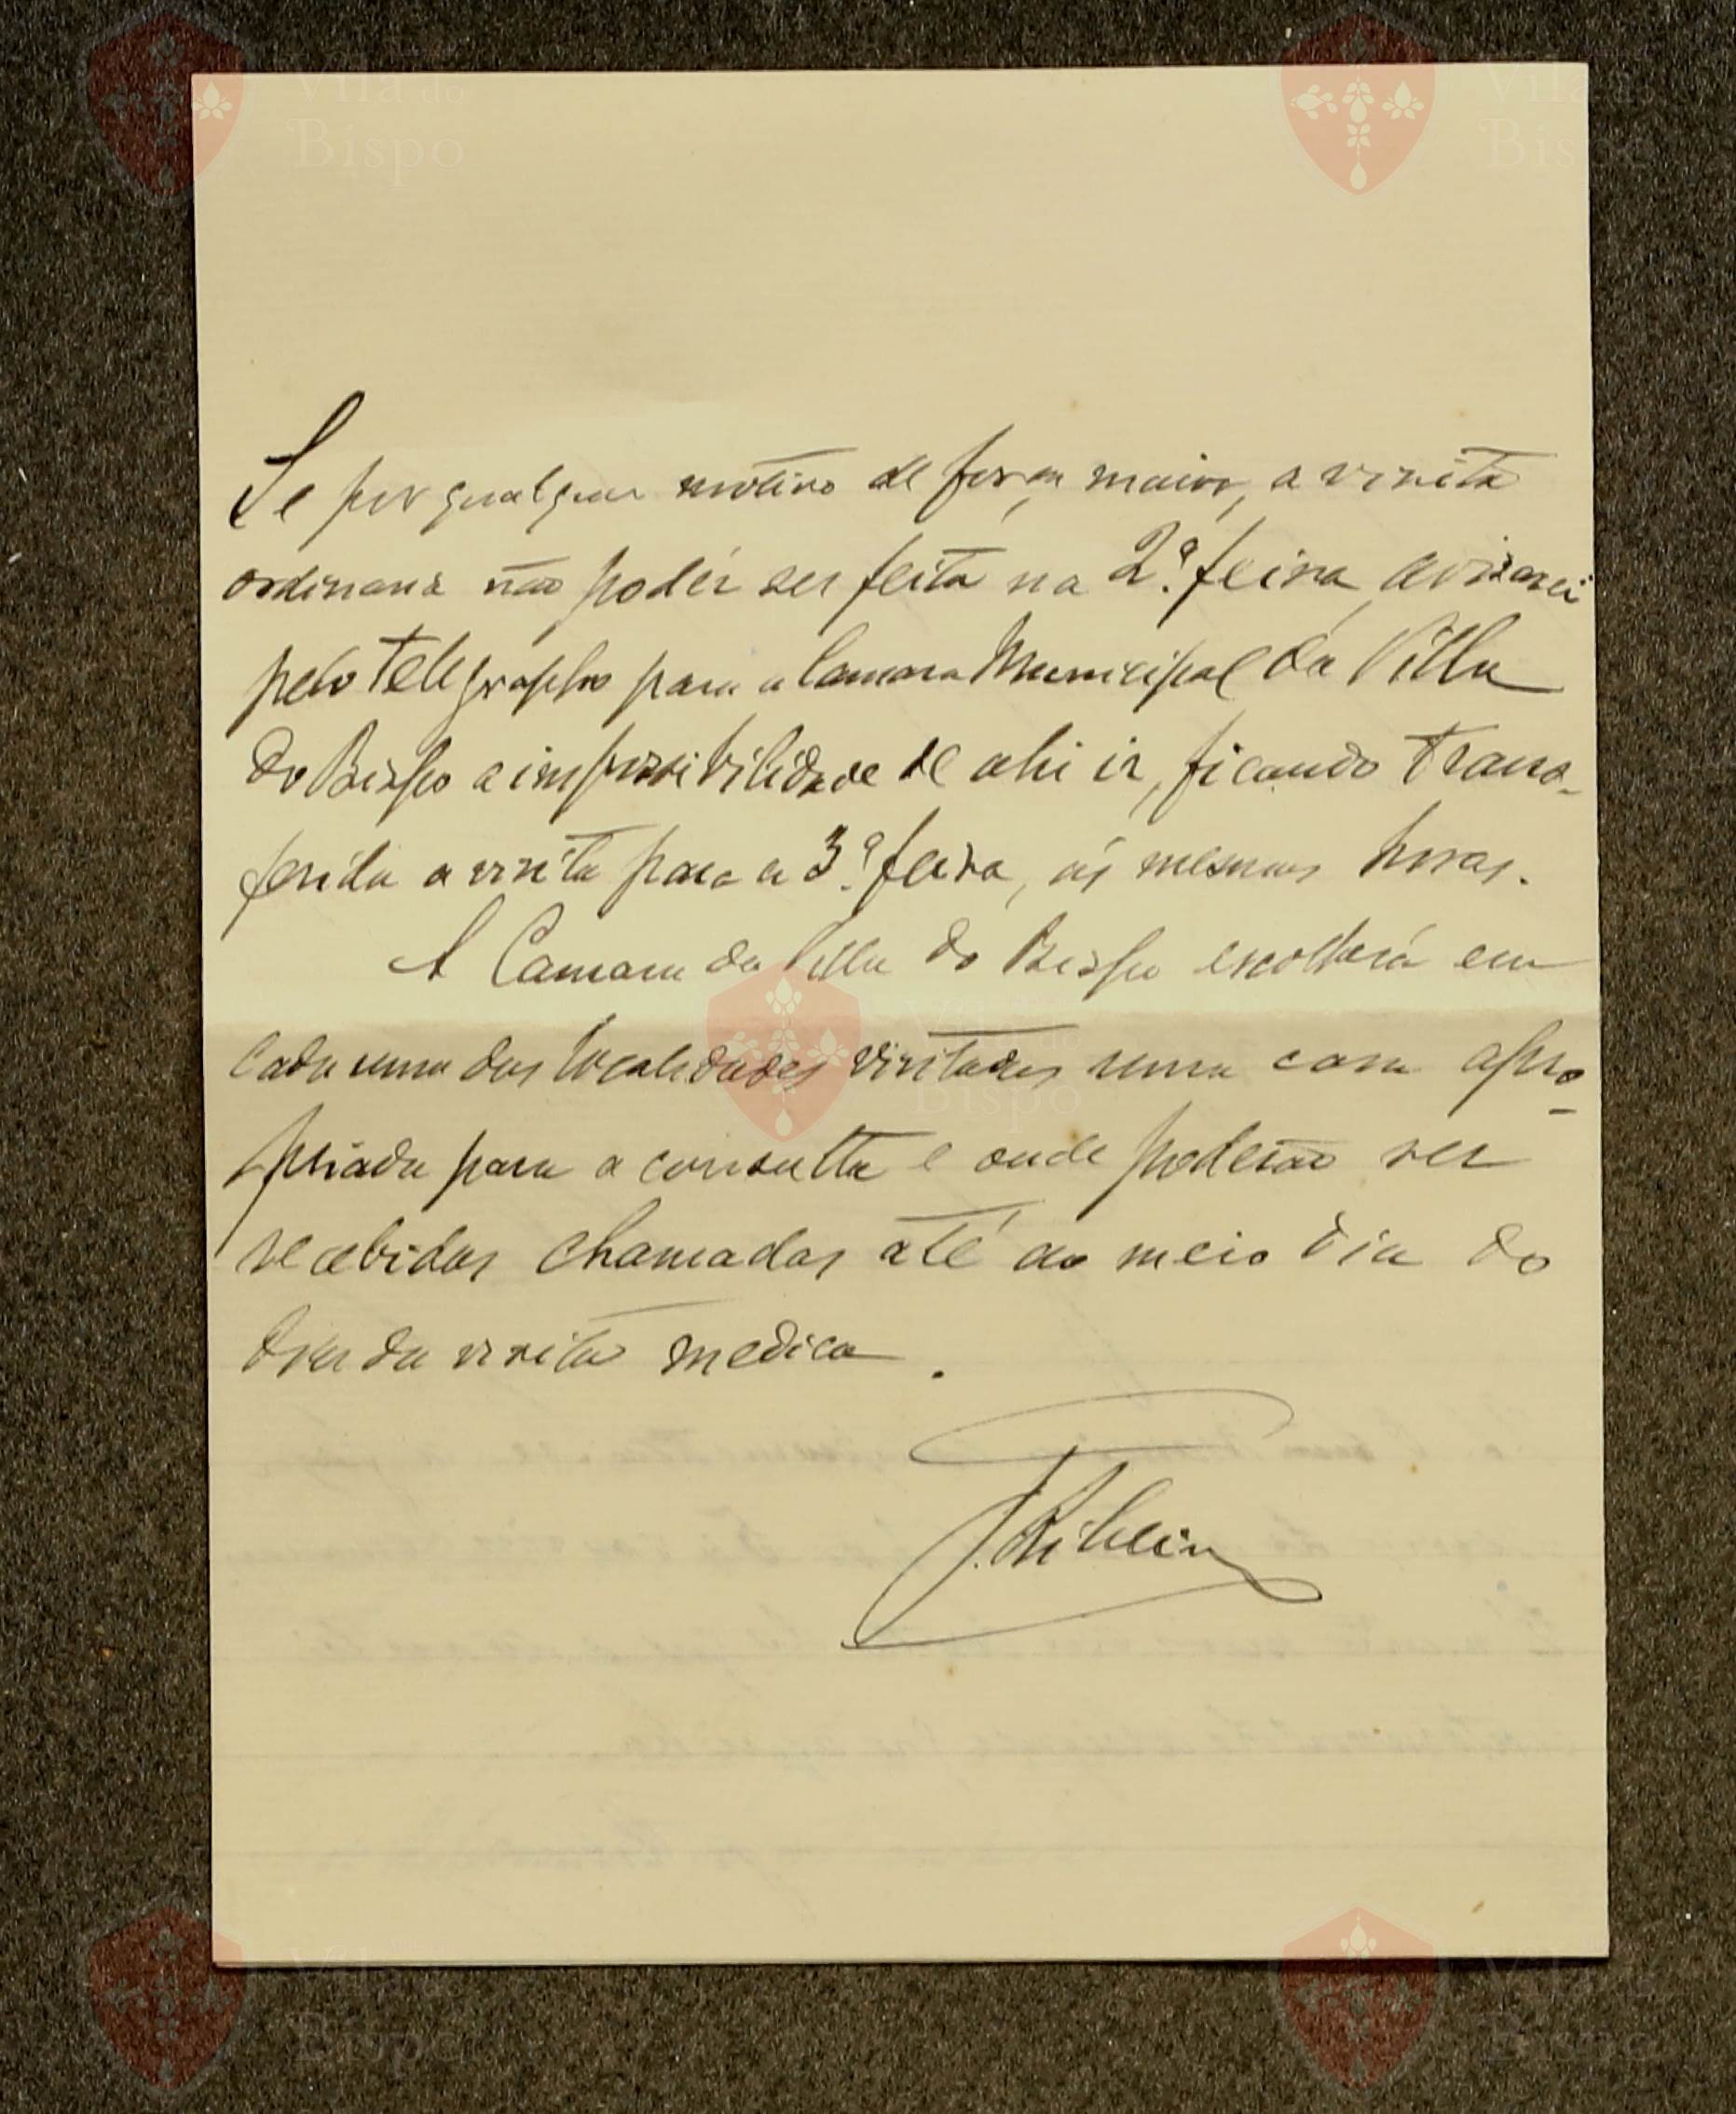 Vila do
Bispo
Vila do
Bispo
Se por qualquer motivo de força maior, a visita
ordinaria não podér ser feita na 2.ª feira, avisarei
pelo telegrapho para a Camara Municipal da Villa
do Bispo a impossibilidade de ahi ir, ficando trans-
ferida a visita para a 3.ª feira, ás mesmas horas.
A Camara da Villa do Bispo escolherá em
cada uma das localidades visitadas uma casa apro-
priada para a consulta e onde poderão ser
recebidas chamadas até ao meio dia do
dia da visita medica.
J. Ribeiro
Vila do
Bispo
Vila do
Bispo
Vila do
Bispo